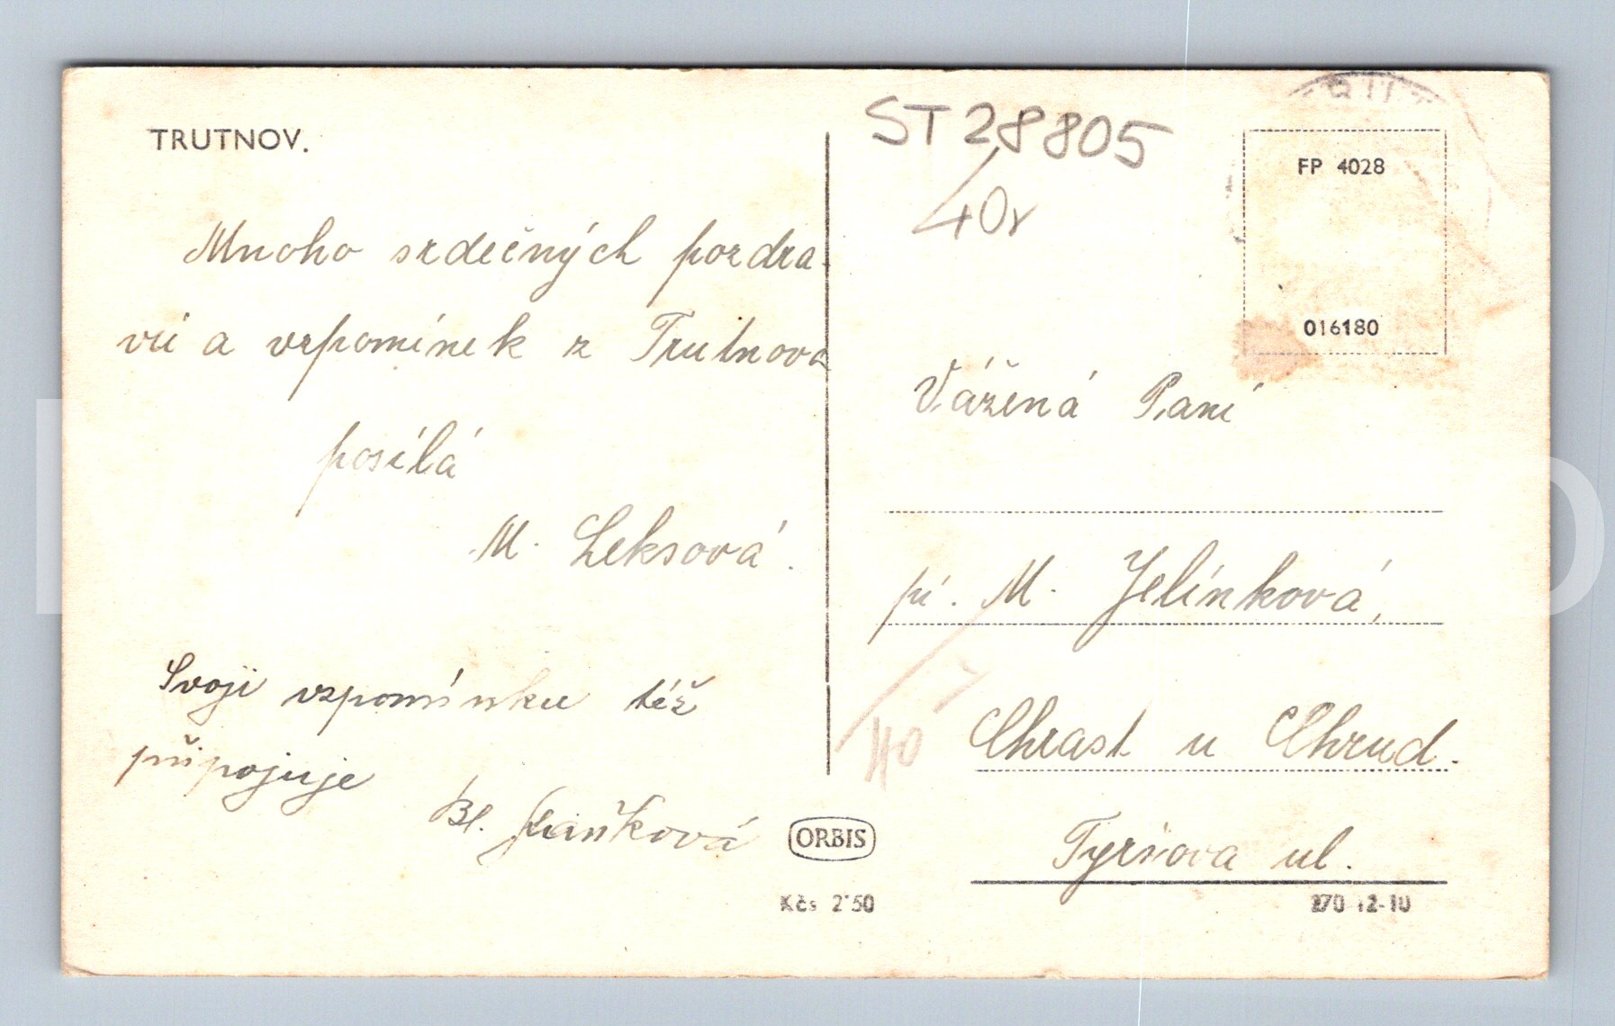 TRUTNOV.
Mnoho srdečných pozdra-
vů a vzpomínek z Trutnova
posílá
M. Leksová.
Svoji vzpomínku též
připojuje
Bl.
ST 28805
40
FP 4028
016180
Vážená Paní
pí. M. Jelínková,
Chrast u Chrud.
Tyršova ul.
40
ORBIS
Kčs 2'50
270 12-10